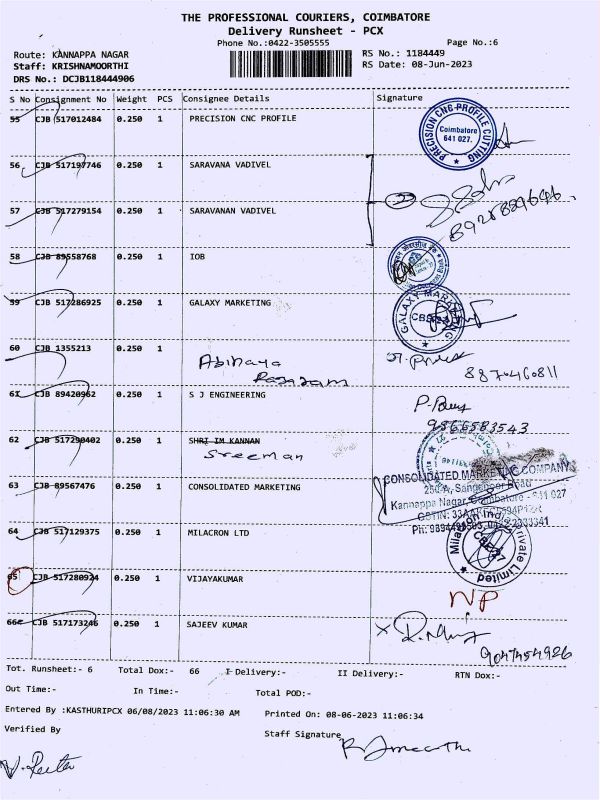 THE PROFESSIONAL COURIERS, COIMBATORE
Delivery Runsheet - PCX
Phone No.:0422-3505555 Page No.:6
Route: KANNAPPA NAGAR RS No.: 1184449
Staff: KRISHNAMOORTHI RS Date: 08-Jun-2023
DRS No.: DCJB118444906
S No Consignment No Weight PCS Consignee Details Signature
55 CJB 517012484 0.250 1 PRECISION CNC PROFILE
PRECISION CNC PROFILE CUTTING
Coimbatore
641 027.
56 CJB 517197746 0.250 1 SARAVANA VADIVEL
57 CJB 517279154 0.250 1 SARAVANAN VADIVEL
2
58 CJB 89558768 0.250 1 IOB
59 CJB 517286925 0.250 1 GALAXY MARKETING
GALAXY MARKETING
60 CJB 1355213 0.250 1
Abinaya
Rajaram
8870460811
61 CJB 89420962 0.250 1 S J ENGINEERING
9366583543
62 CJB 517290402 0.250 1 SHRI IM KANNAN
Sreeman
63 CJB 89567476 0.250 1 CONSOLIDATED MARKETING
CONSOLIDATED MARKETING COMPANY
Kannappa Nagar, Coimbatore - 641 027
64 CJB 517129375 0.250 1 MILACRON LTD
Milacron India Private Limited
65 CJB 517280924 0.250 1 VIJAYAKUMAR
NP
66 CJB 517173246 0.250 1 SAJEEV KUMAR
9047454926
Tot. Runsheet:- 6 Total Dox:- 66 I Delivery:- II Delivery:- RTN Dox:-
Out Time:- In Time:- Total POD:-
Entered By :KASTHURIPCX 06/08/2023 11:06:30 AM Printed On: 08-06-2023 11:06:34
Verified By Staff Signature